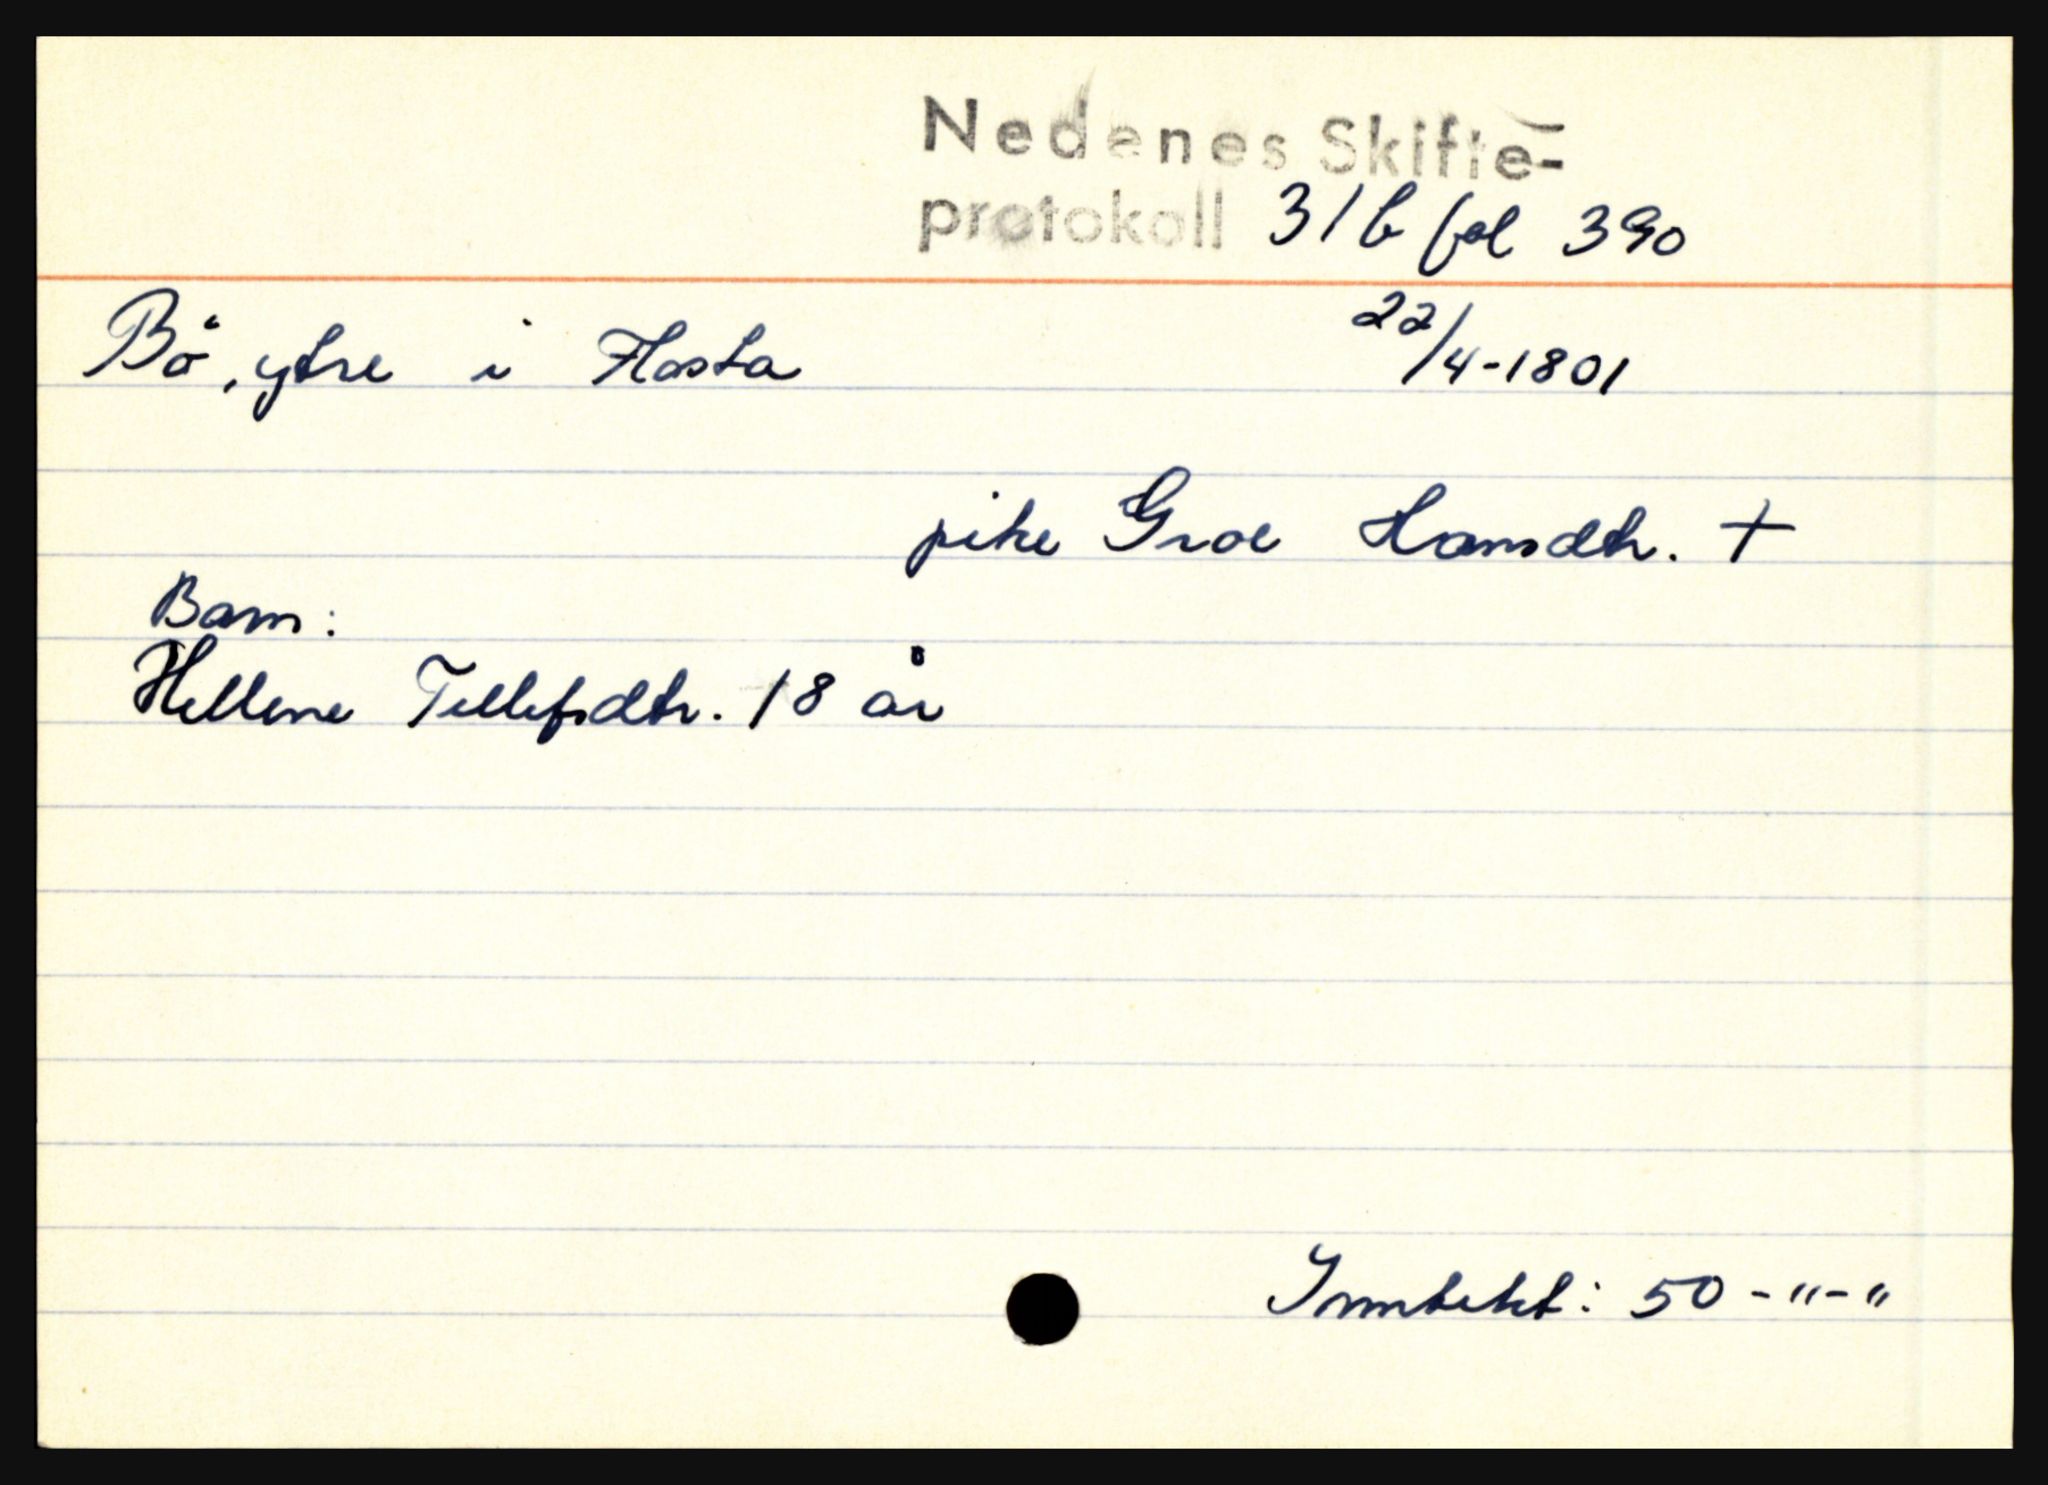 Nedenes Skifte-
protokoll 31b fol 390
Bö, ytre i Flosta 22/4-1801
pike Groe Hansdtr. +
Barn:
Hellene Tellefsdtr. 18 år
Inntekt: 50 - " - "